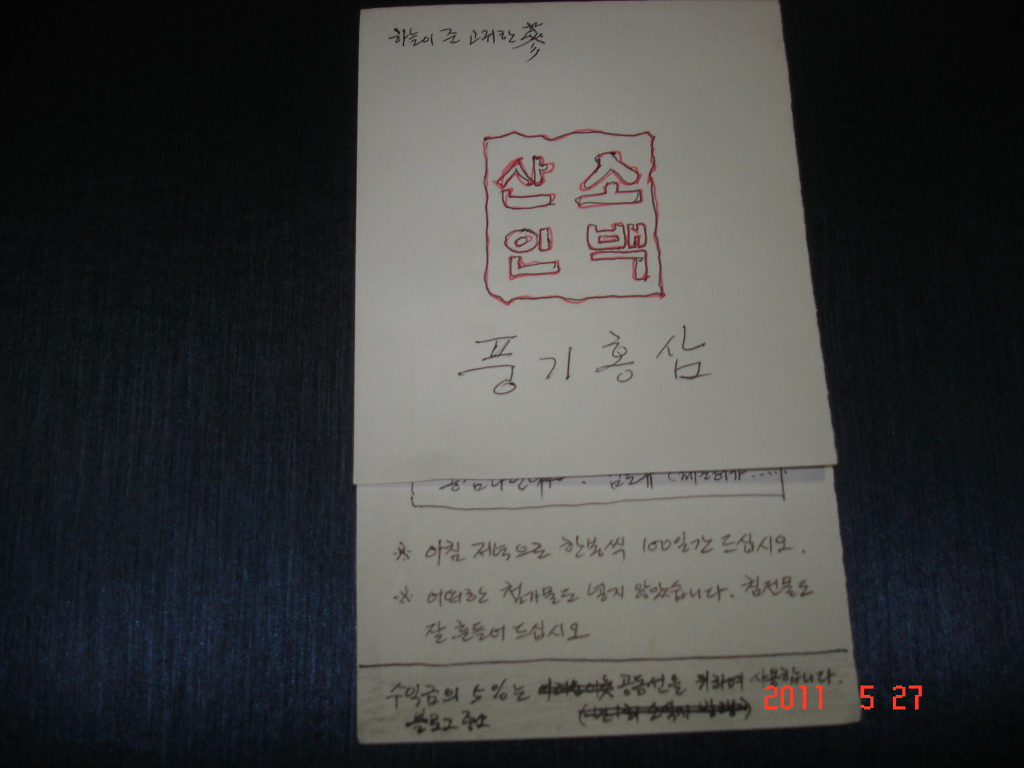 하늘이 준 고귀한 蔘
산 소
인 백
풍기홍삼
※ 아침 저녁으로 한봉씩 100일간 드십시오.
※ 어떠한 첨가물도 넣지 않았습니다. 침전물도
잘 흔들어 드십시오
수익금의 5%는 공동선을 위하여 사용합니다.
블로그 주소
2011 5 27